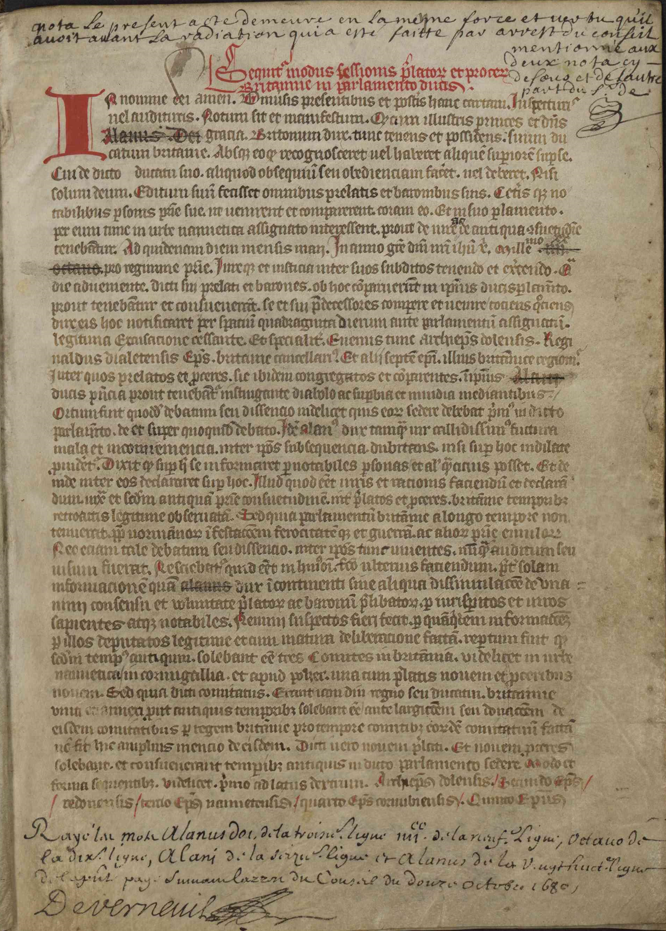 nota le present acte demeure en la même force et vertu qu'il
avoit avant la radiation qui a este faitte par arrest du conseil
mentionné aux
deux nota cy
desous et de l'autre
part du Sr de
Sequitr modus sessionis plator et procer
Britannie in parlamento ducis
In nomine dei amen. Universis presentibus et postis hanc cartam. Inspecturis
vel audituris. Notum sit et manifestum. Quum illustris princes et dns
Alanus Dei gracia. Britonum dux. tunc tenens et possidens. suum du
catum britanie. Absq eo q recognosceret vel haberet aliquem superiorem supse.
Cui de dicto ducatu suo. aliquod obsequium seu obedienciam facet. vel deberet. Nisi
solum deum. Edictum suum fecisset omnibus prelatis et baronibus suis. Cetis q no
tabilibus psonis prie sue. ut venirent et comparerent. coram eo. Et in suo plamento.
per eum tunc in urbe nannetica assignato interessent. prout de iure ac de antiqua suetudine
tenebantur. Ad quindenam diem mensis maii. In anno gre dni nri ihu x. Mille mo
octauo. pro regimine prie. Iureq et iusticia inter suos subditos tenendo et exercendo. Qua
die adveniente. dicti sui prelati et barones. ob hoc coparuerunt in ipsius ducis plamto.
prout tenebantur et consueverant. se et sui predecessores compere et venire tociens quociens
dux eis hoc notificaret per spatium quadraginta dierum ante parlamentum assignatum.
legitima excusacione cessante. Et specialit. Evenus tunc archieps dolensis. Regi
naldus dialetensis Eps. britanie cancellari. Et alii septem epi. illius britannice regionis.
Inter quos prelatos et pceres. sic ibidem congregatos et coparentes. i ipsius Alani
ducis pncia prout tenebatur instigante diabolo ac supbia et invidia mediantibus
Ortum fuit quoddam debatum seu dissencio videlicet quis eor sedere debebat primus in dicto
parlamto. de et super quoquidem debato. Ide alanus dux tamquam vir callidissimus futura
mala et inconveniencia. inter ipos subsequencia dubitans. nisi sup hoc indilate
provideret. Dixit q sup hoc se informaret p notabiles psonas et al q cicius posset. Et de
inde inter eos declararet sup hoc. Illud quod esset iuris et racionis faciendum et declaran
dum. iuxta et scdm antiquam prie consuetudinem. int platos et pceres. britanie temporibus
retroactis legitime observatam. Sed quia parlamentum britanie a longo tempore non
tenuerat. pp normanor infestacem ferocitatem q et guerram. ac alior prie emulor
Nec eciam tale debatum seu dissencio. inter ipos tunc viventes. nusq auditum seu
visum fuerat. Nesciebat quid esset in huiusmodi facto ulterius faciendum. preter solam
informacionem quam alanus dux incontinenti sine aliqua dissimulacione de una
nimi consensu et voluntate plator ac baronum plibator. p iurisperitos et viros
sapientes atq notabiles. Nemini suspectos fieri fecit. p quam quidem informacionem
p illos deputatos legitime et cum matura deliberacione factam. reptum fuit q
scdm tempus antiquum. solebant esse tres Comites in britania. videlicet in urbe
nannetica in cornugallia. et apud poher. una cum platis novem et pceribus
novem. Sed quia dicti comitatus. Erant iam diu regno seu ducatui. britannie
uniti et annexi put antiquis temporibus solebant esse ante largitiem seu donacem de
eisdem comitatibus p regem britanie pro tempore comitibus eorde comitatuum factam
ne fit hic amplius mencio de eisdem. Dicti vero novem plati. Et novem pceres
solebant. et consueverant temporibus antiquis in dicto parlamento sedere. Modo et
forma sequentibus. videlicet. primo ad latus dextrum. Archieps dolensis / Secundo Eps /
/ redonensis / tercio Eps nannetensis / quarto Eps cornubiensis / Quinto Epus
Rayé les mots Alanus Dei, de la troisie. ligne IIIIcc. de la neuf.e Ligne, Octavo de
la dixe. ligne, Alani de la seize.e ligne et Alanus de la vingt huict.e ligne
de laquit page suivant larrest du Conseil du douze octobre 1680,
De Verneuil